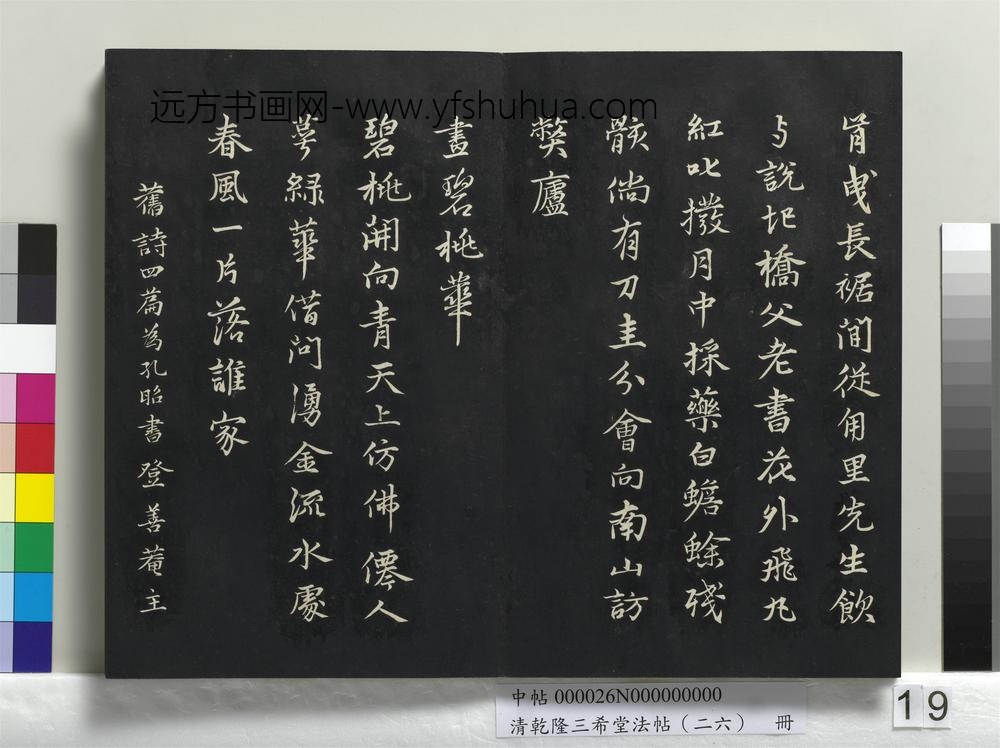 肯曳長裾閒從甪里先生飲
与說圯橋父老書花外飛丸
紅叱撥月中採藥白蟾蜍殘
骸倘有刀圭分會向南山訪
獘廬
畫碧桃華
碧桃開向青天上仿佛僊人
萼緑華借问湧金流水處
春風一片落誰家
舊詩四篇為孔昭書登善菴主
远方书画网-www.yfshuhua.com
中帖 000026N000000000
清乾隆三希堂法帖(二六) 冊
19